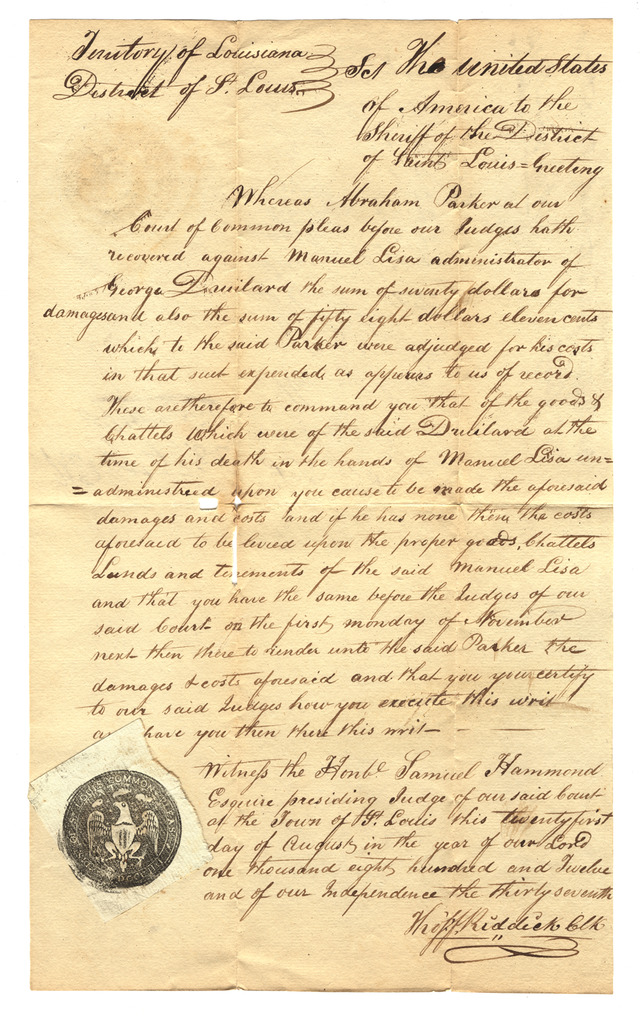 Territory of Louisiana
District of St. Louis
Sct The United States
of America to the
Sheriff of the District
of Saint Louis = Greeting
Whereas Abraham Parker at our
Court of Common pleas before our Judges hath
recovered against Manuel Lisa administrator of
George Druilard the sum of seventy dollars for
damages and also the sum of fifty eight dollars eleven cents
which to the said Parker were adjudged for his costs
in that suit expended as appears to us of record.
These are therefore to command you that of the goods &
Chattels which were of the said Druilard at the
time of his death in the hands of Manuel Lisa un=
=administred upon you cause to be made the aforesaid
damages and costs and if he has none then the costs
aforesaid to be levied upon the proper goods, Chattels
Lands and tenements of the said Manuel Lisa
and that you have the same before the Judges of our
said Court on the first monday of November
next then there to render unto the said Parker the
damages & costs aforesaid and that you you certify
to our said Judges how you execute this writ
and have you then there this writ —
Witness the Honble Samuel Hammond
Esquire presiding Judge of our said Court
at the Town of St. Louis this twenty first
day of August in the year of our Lord
one thousand eight hundred and Twelve
and of our Independence the thirty seventh
Thos. F. Riddick Clk
COMMON PLEAS